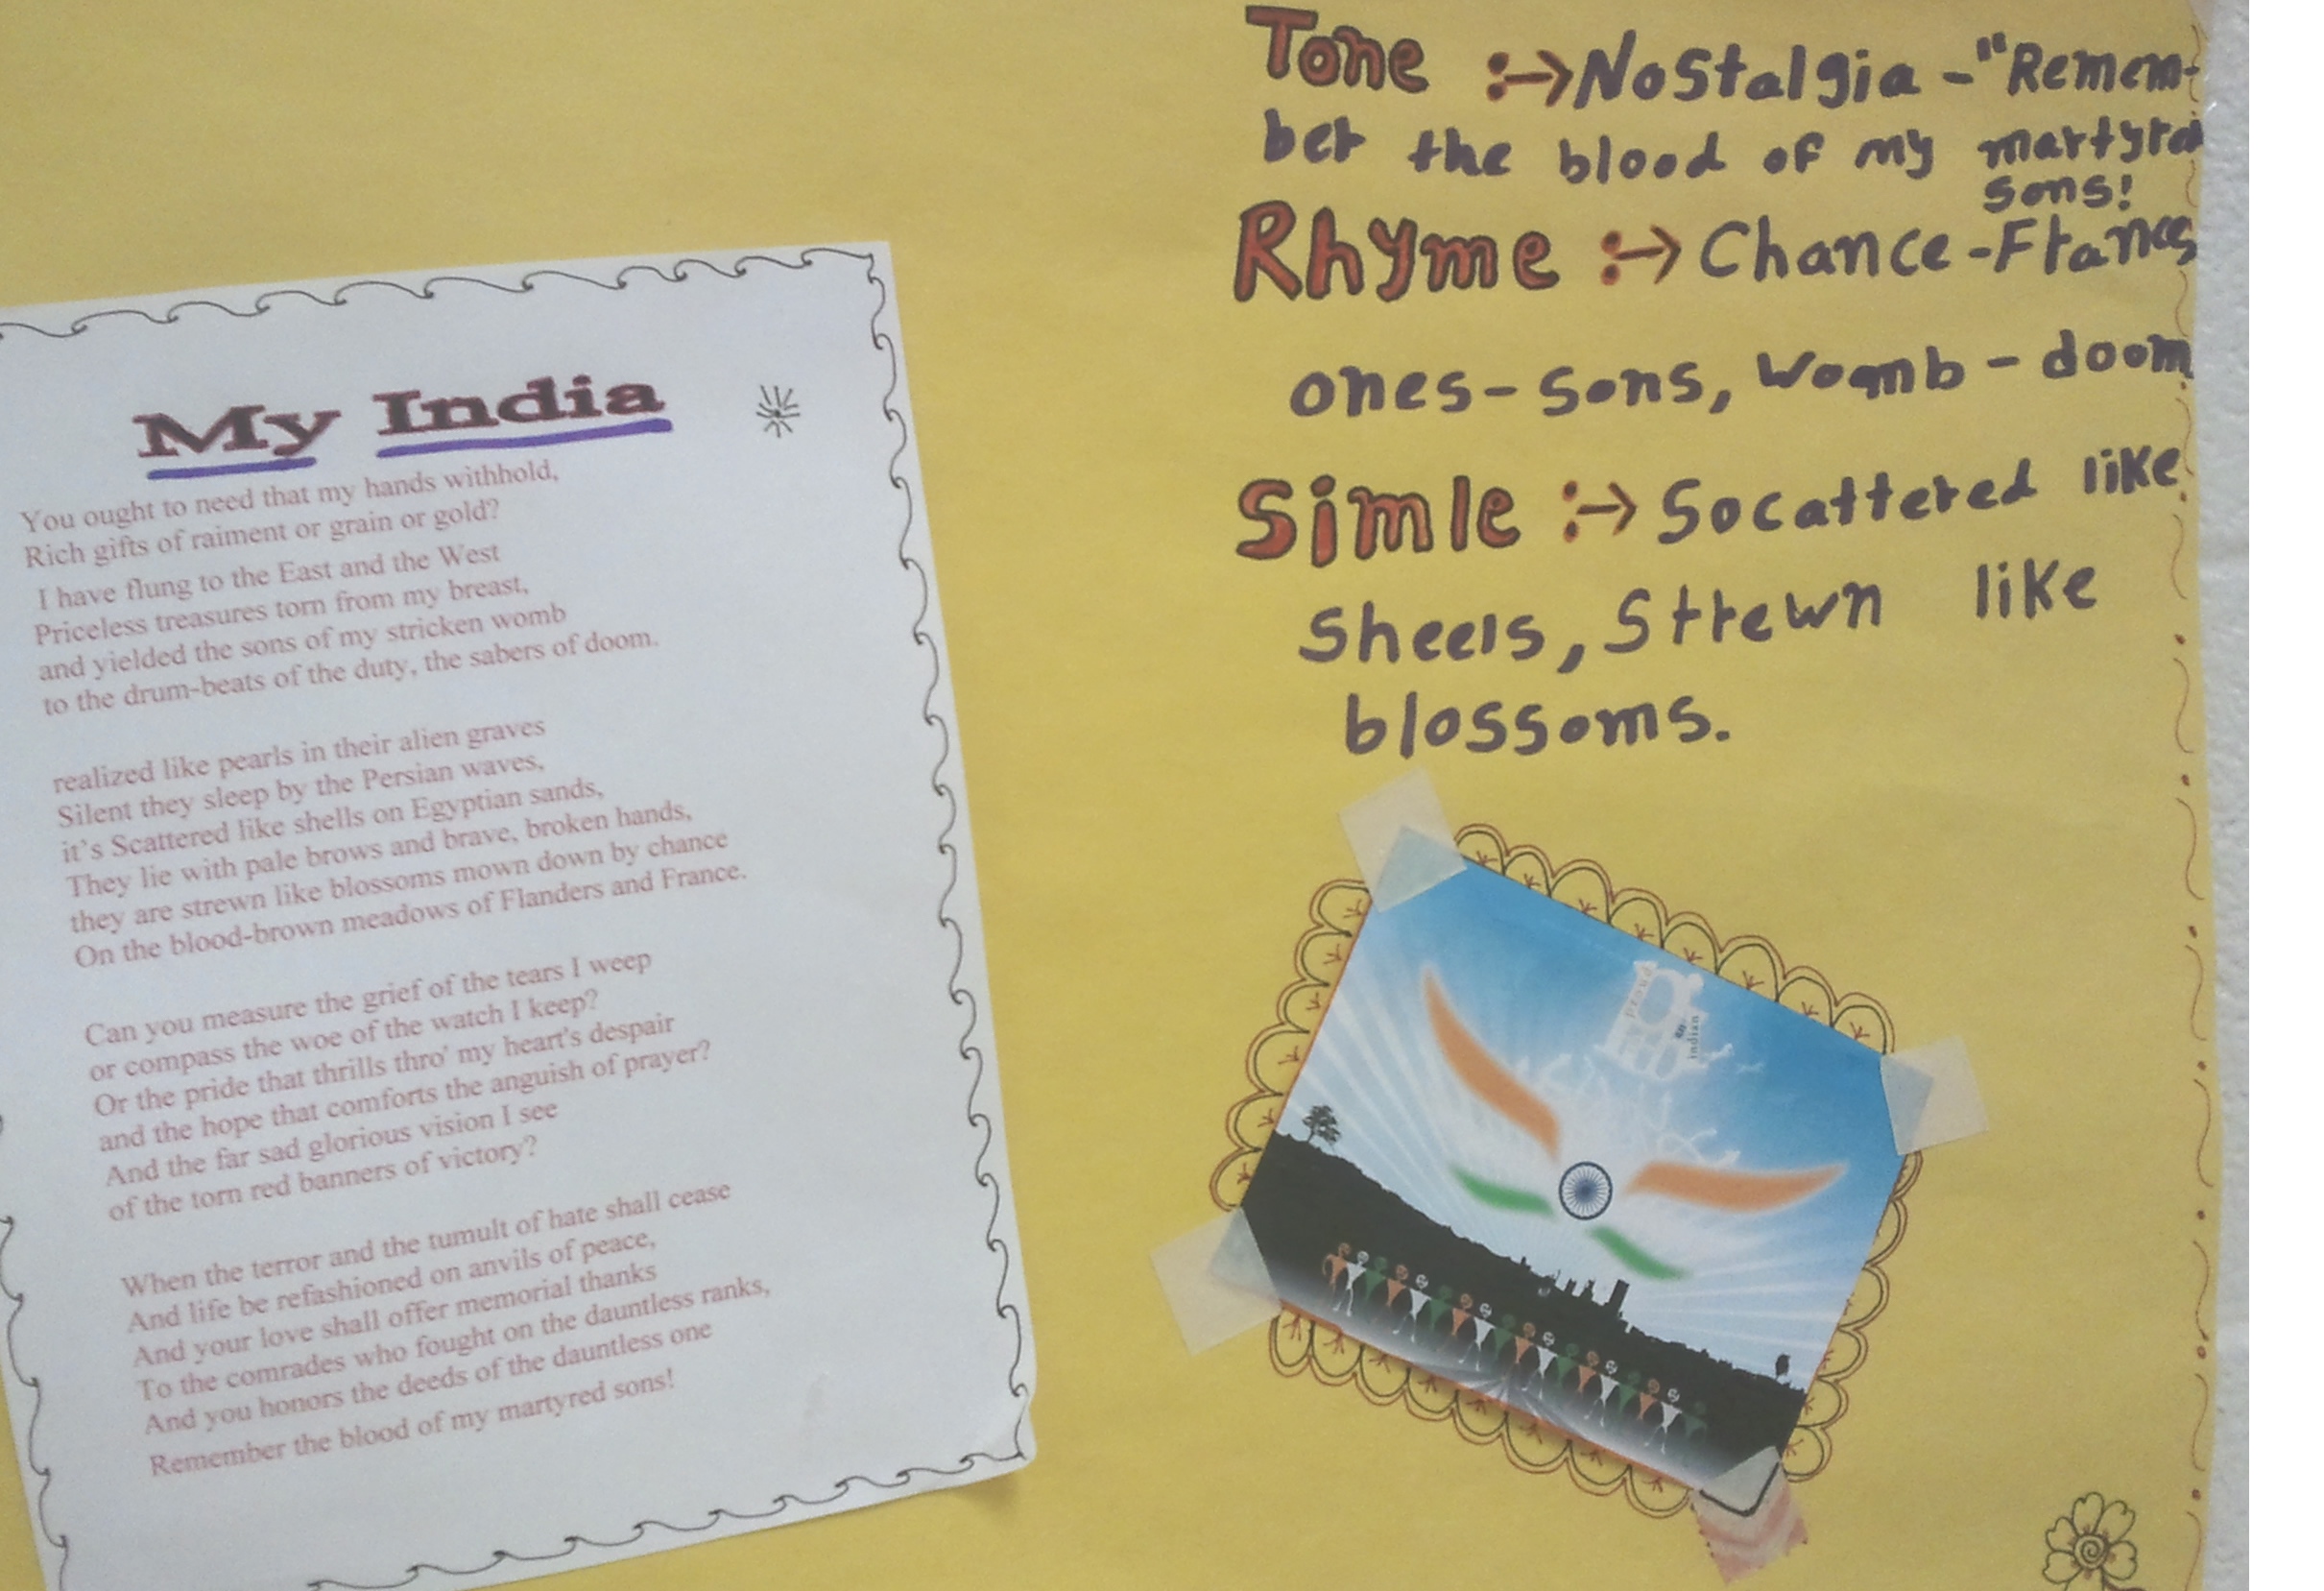 My India
You ought to need that my hands withhold,
Rich gifts of raiment or grain or gold?
I have flung to the East and the West
Priceless treasures torn from my breast,
and yielded the sons of my stricken womb
to the drum-beats of the duty, the sabers of doom.
realized like pearls in their alien graves
Silent they sleep by the Persian waves,
it's Scattered like shells on Egyptian sands,
They lie with pale brows and brave, broken hands,
they are strewn like blossoms mown down by chance
On the blood-brown meadows of Flanders and France.
Can you measure the grief of the tears I weep
or compass the woe of the watch I keep?
Or the pride that thrills thro' my heart's despair
and the hope that comforts the anguish of prayer?
And the far sad glorious vision I see
of the torn red banners of victory?
When the terror and the tumult of hate shall cease
And life be refashioned on anvils of peace,
And your love shall offer memorial thanks
To the comrades who fought on the dauntless ranks,
And you honors the deeds of the dauntless one
Remember the blood of my martyred sons!
Tone :→ Nostalgia - "Remem-
ber the blood of my martyrd
sons!
Rhyme :→ Chance-France
ones-sons, womb-doom
Simle :→ Socattered like
sheels, Strewn like
blossoms.
proud
indian